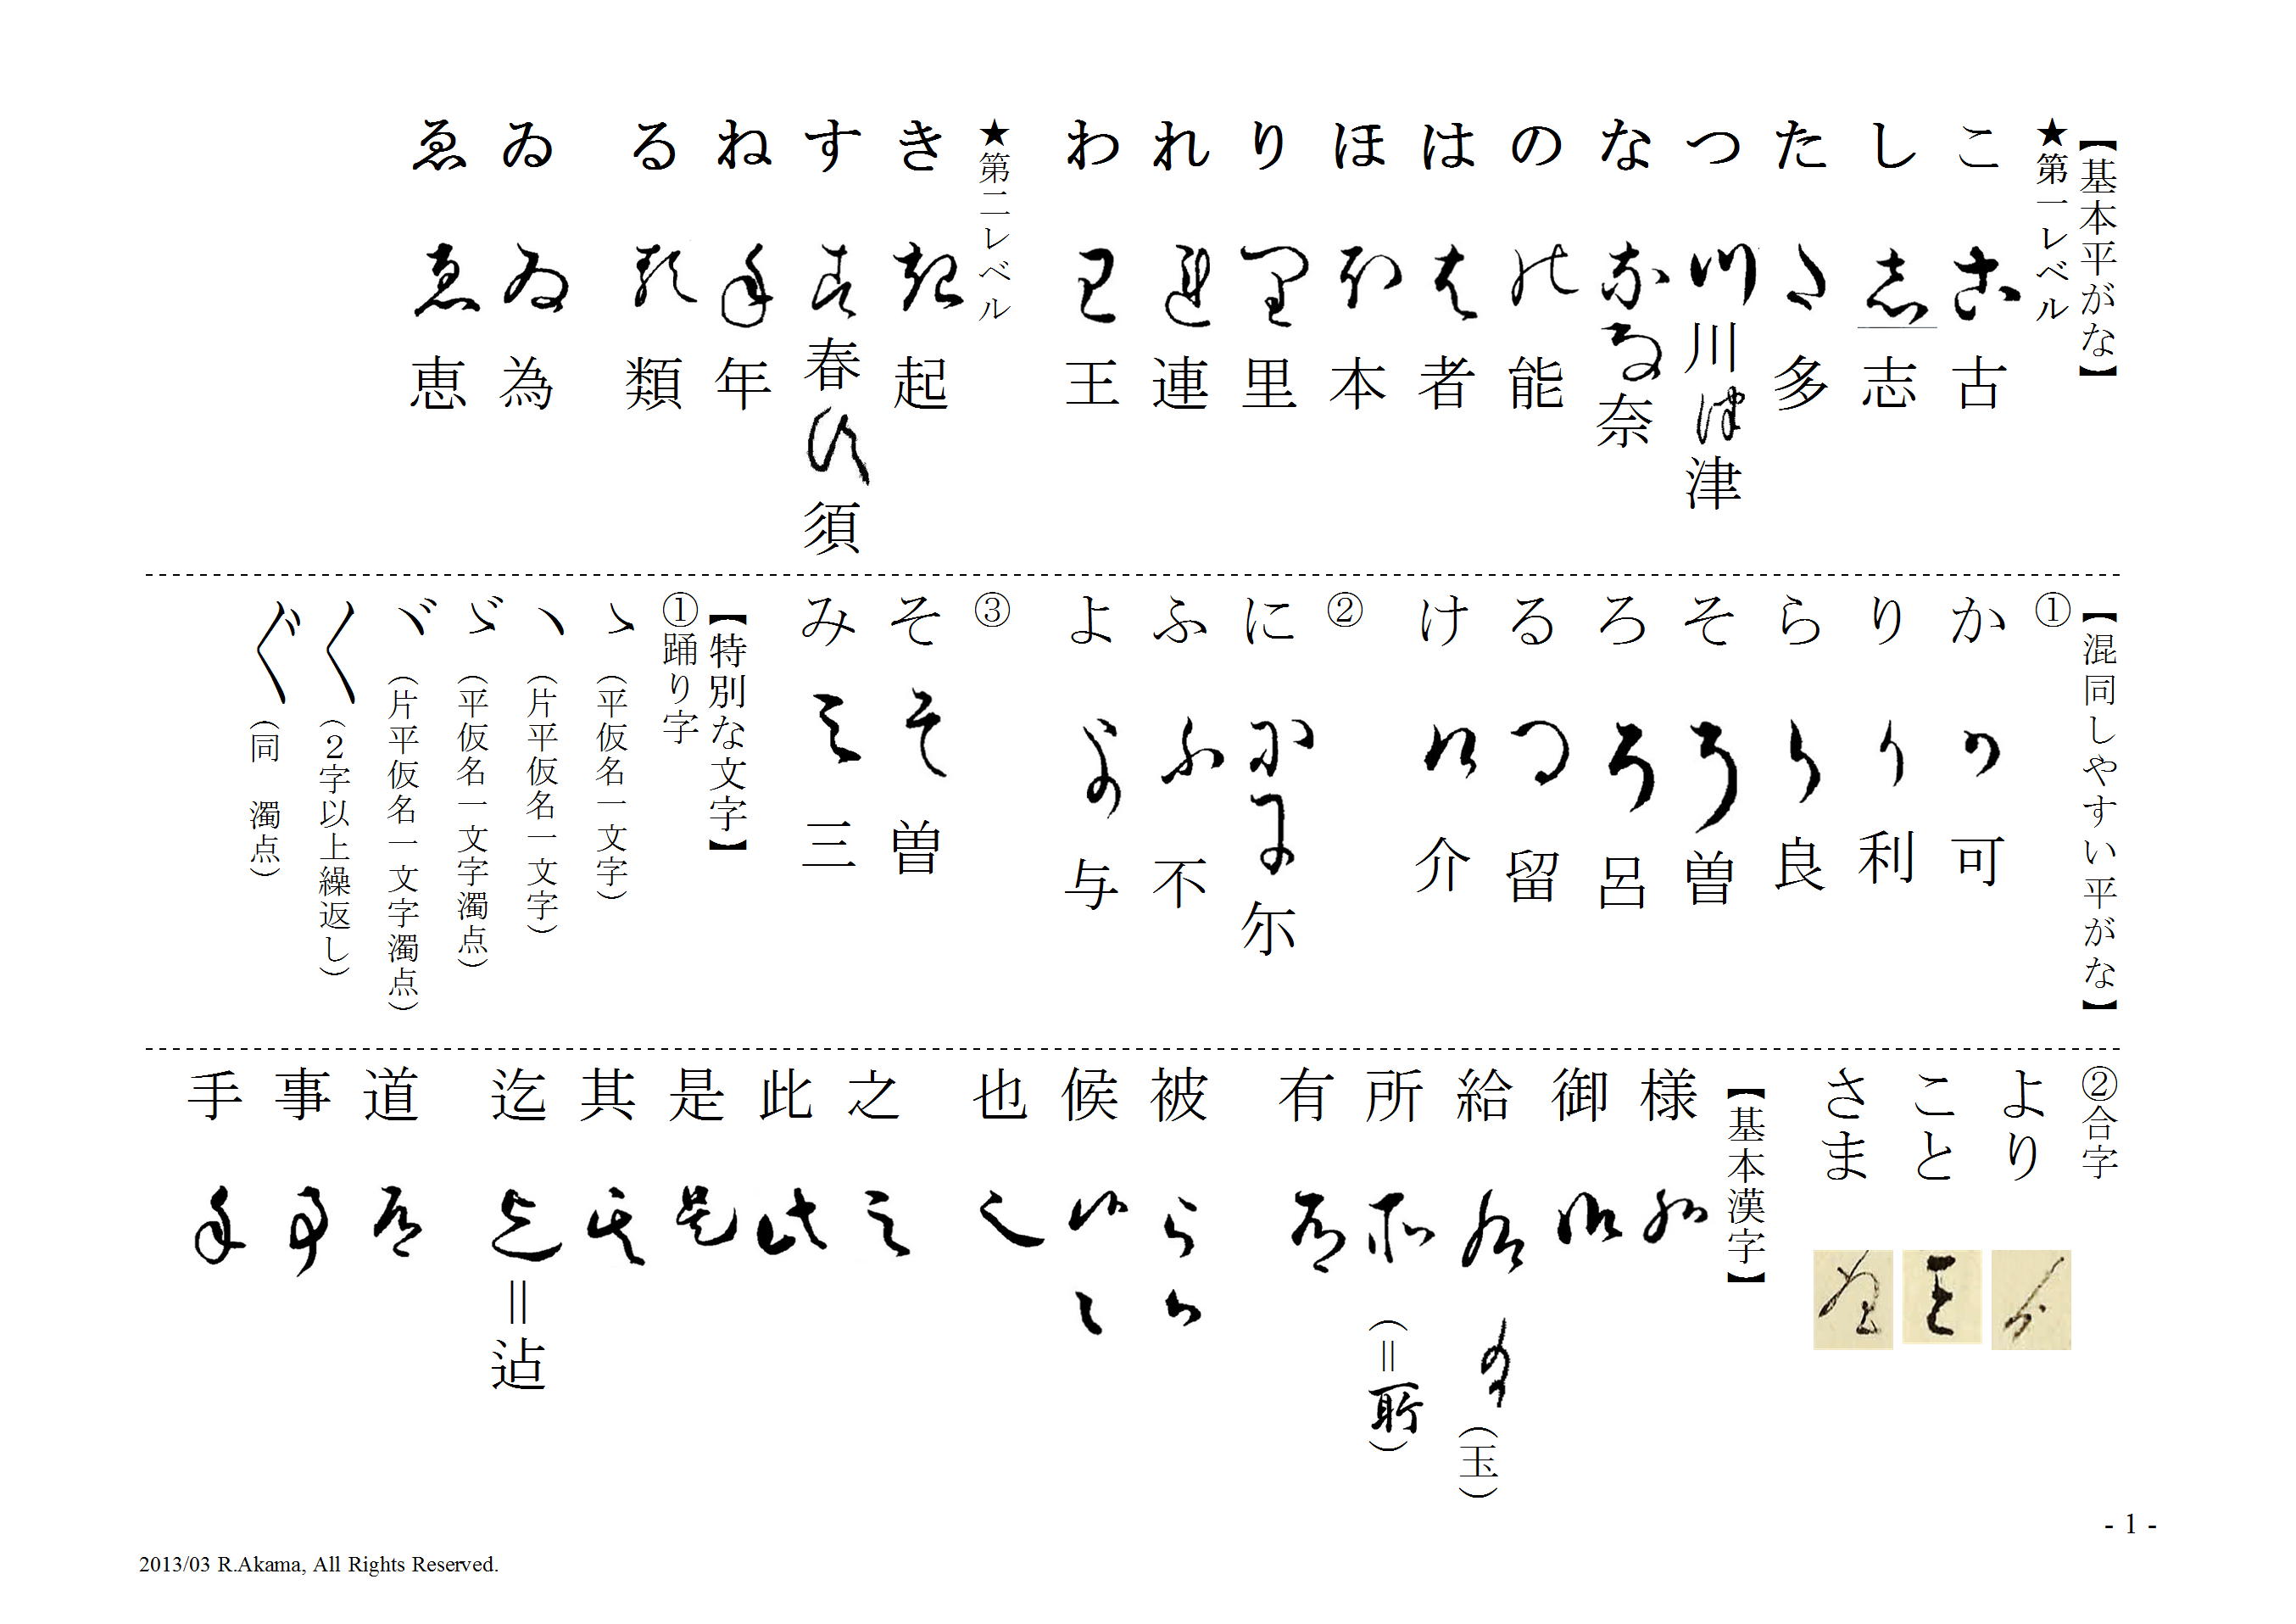 【基本平がな】
★第一レベル
こ 古
し 志
た 多
つ 川 津
な 奈
の 能
は 者
ほ 本
り 里
れ 連
わ 王
★第二レベル
き 起
す 春 須
ね 年
る 類
ゐ 為
ゑ 恵
【混同しやすい平がな】
①
か 可
り 利
ら 良
そ 曽
ろ 呂
る 留
け 介
②
に 尓
ふ 不
よ 与
③
そ 曽
み 三
【特別な文字】
①踊り字
ゝ(平仮名一文字)
ヽ(片平仮名一文字)
ゞ(平仮名一文字濁点)
ヾ(片平仮名一文字濁点)
〱(2字以上繰返し)
〲(同 濁点)
②合字
より
こと
さま
【基本漢字】
様
御
給 (玉)
所 (=㪽)
有
被
候
也
之
此
是
其
迄 =迠
道
事
手
- 1 -
2013/03 R.Akama, All Rights Reserved.